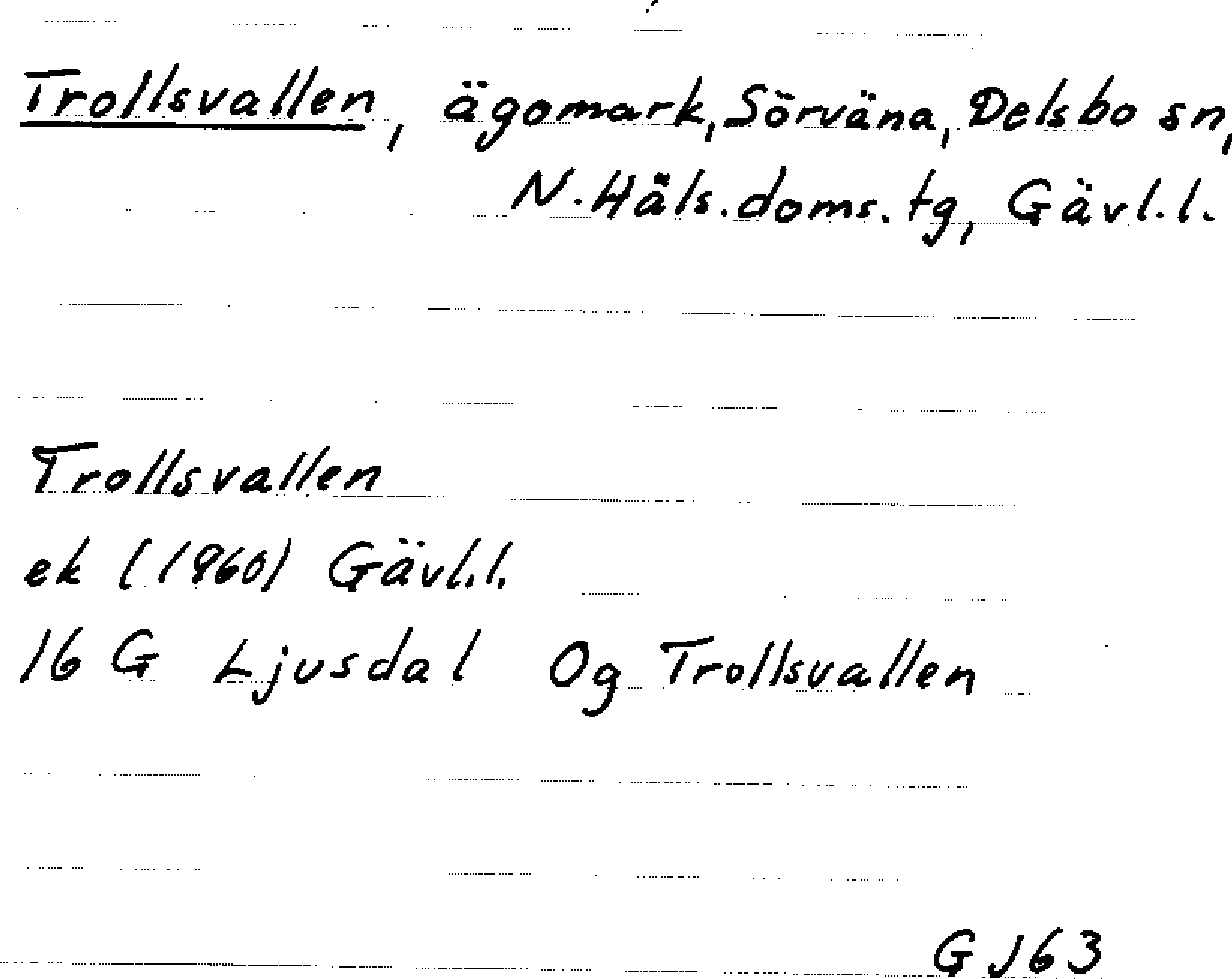 Trollsvallen, ägomark, Sörväna, Delsbo sn,
N. Häls. doms. tg, Gävl. l.
Trollsvallen
ek (1960) Gävl. l.
16 G Ljusdal Og Trollsvallen
G J 63